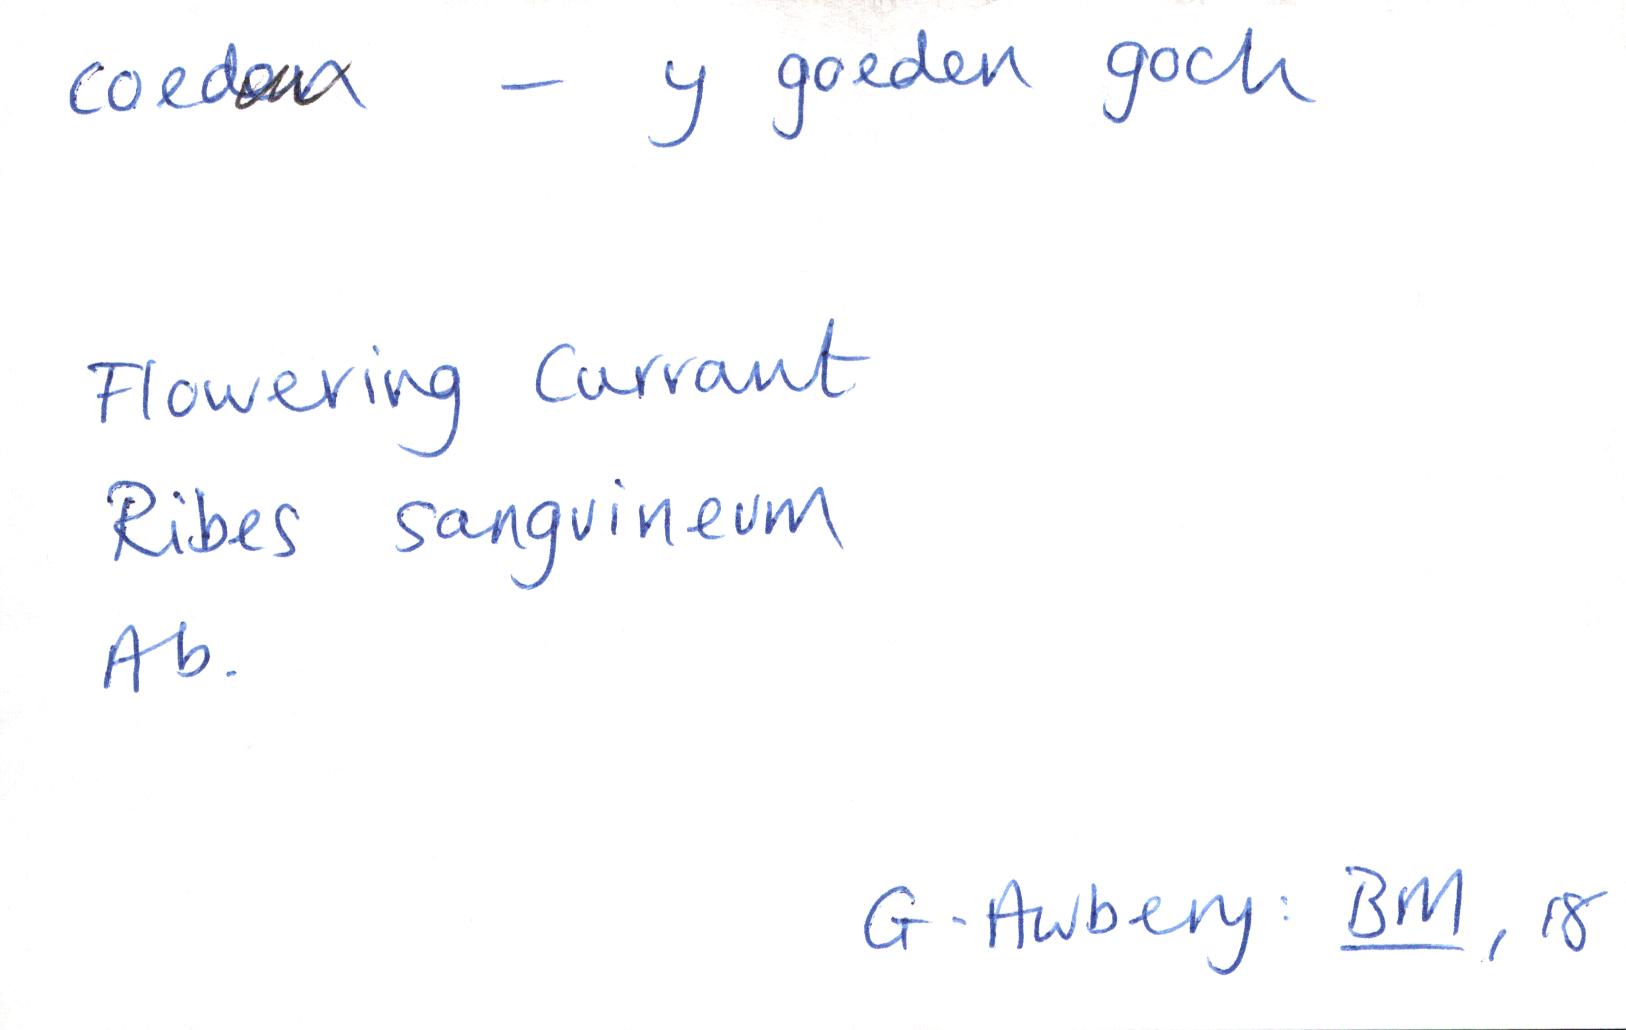 coed - y goeden goch
Flowering Currant
Ribes sanguineum
Ab.
G. Awbery: BM, 18